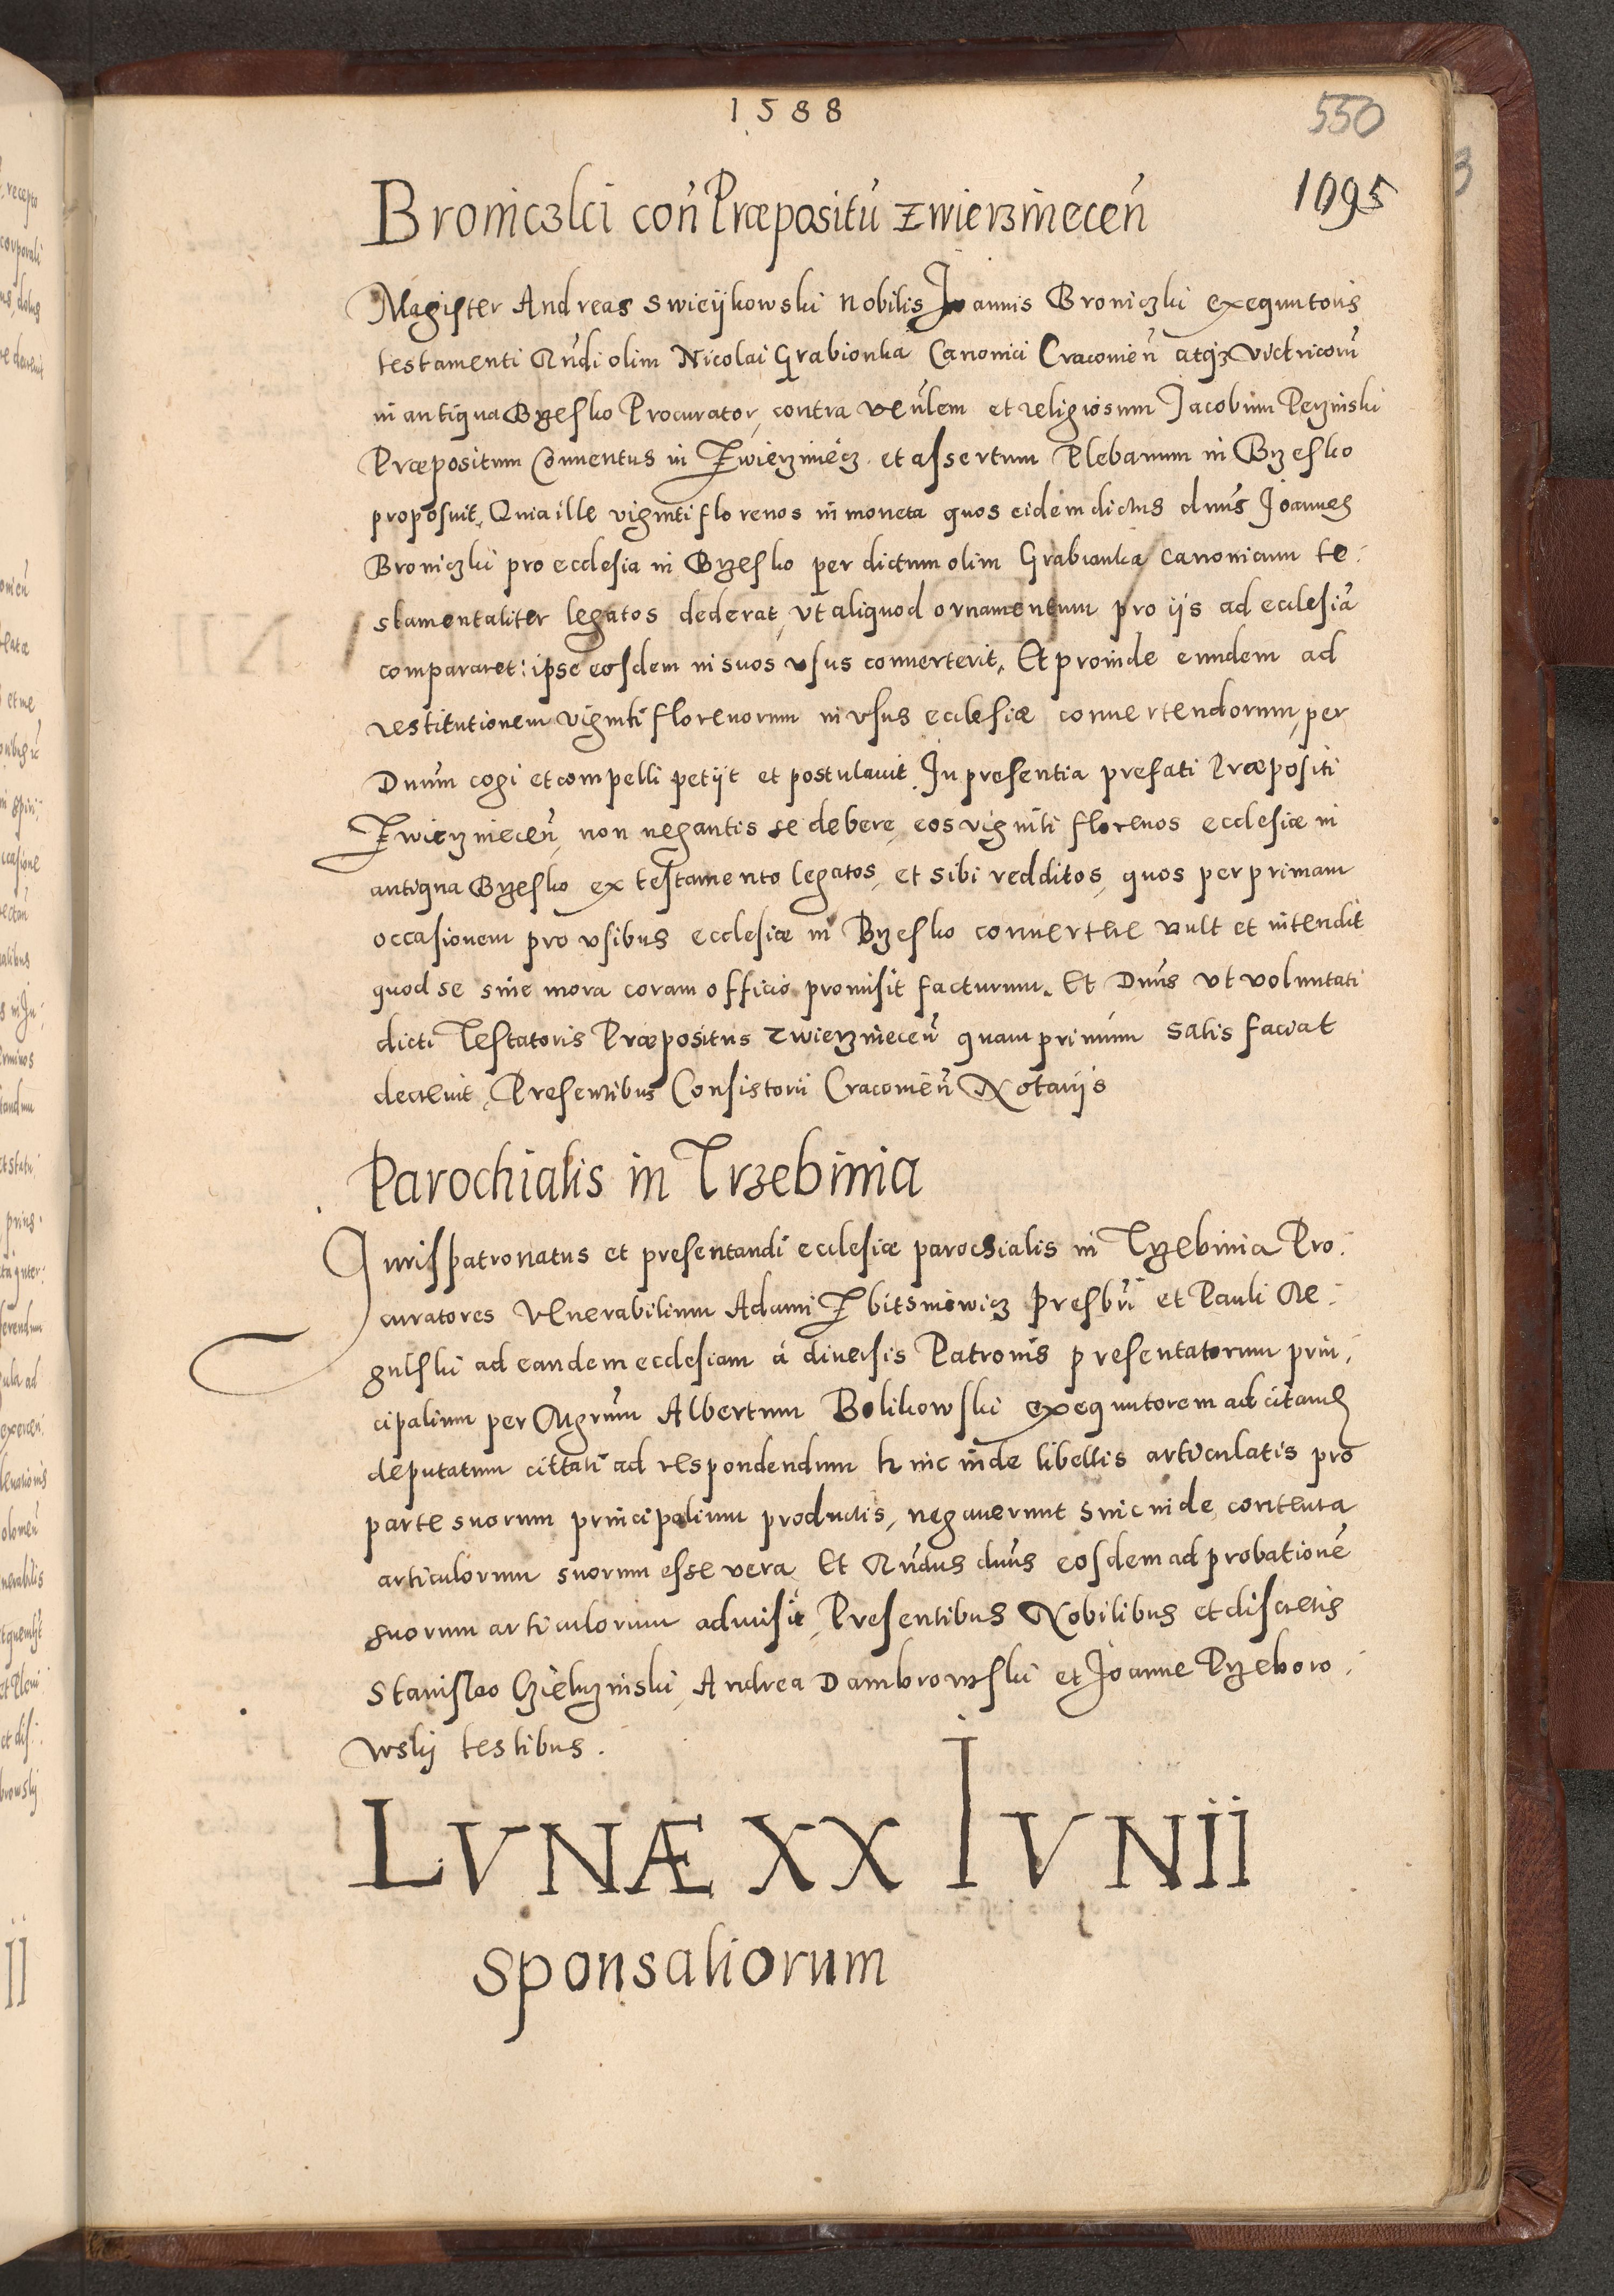 1588
550
1095
Broniczki con̄ Præpositū Zwierzinecen̄
Magister Andreas Swieykowski Nobilis Joannis Broniczki exequutoris
testamenti Rn̄di olim Nicolai Grabionka Canonici Cracouien̄ atqz victricorū
in antiqua Brzesko Procurator, contra Ven̄lem et religiosum Jacobum Perzinski
Præpositum Conuentus in Zwierziniecz et assertum Plebanum in Brzesko
proposuit, Quia ille viginti florenos in moneta quos eidem dictus dnūs Joannes
Broniczki pro ecclesia in Brzesko per dictum olim Grabionka Canonicum te:
stamentaliter legatos dederat, vt aliquod ornamentum pro ijs ad ecclesiā
compararet: ipse eosdem in suos vsus conuerterit, Et proinde eundem ad
restitutionem viginti florenorum in vsus ecclesiæ conuertendorum, per
Dnūm cogi et compelli petijt et postulauit. In presentia prefati Præpositi
Zwierziniecen̄, non negantis se debere, eos viginti florenos ecclesiæ in
antiqua Brzesko ex testamento legatos, et sibi redditos, quos per primam
occasionem pro vsibus ecclesiæ in Brzesko conuertere vult et intendit
quod se sine mora coram officio promisit facturum. Et Dnūs vt voluntati
dicti Testatoris Præpositus Zwierziniecen̄ quamprimum satis faciat
decreuit, Presentibus Consistorii Cracouien̄ Notarijs
Parochialis in Trzebinia
Jurispatronatus et presentandi ecclesiæ parochialis in Trzebinia Pro:
curatores Venerabilium Adami Zbitsniowicz Presbrī et Pauli Re:
gulski ad eandem ecclesiam á diuersis Patronis presentatorum prin:
cipalium per Mgrūm Albertum Bolikowski exequutorem ad citand
deputatum cittati ad respondendum hinc inde libellis articulatis pro
parte suorum principalium productis, negauerunt hinc inde contenta
articulorum suorum esse vera Et Rn̄dus dnūs eosdem ad probationē
suorum articulorum admisit, Presentibus Nobilibus et discretis
Stanislao Czieluzinski, Andrea Dambrowski et Joanne Przeboro:
wskij testibus.
LVNÆ XX IVNII
Sponsaliorum